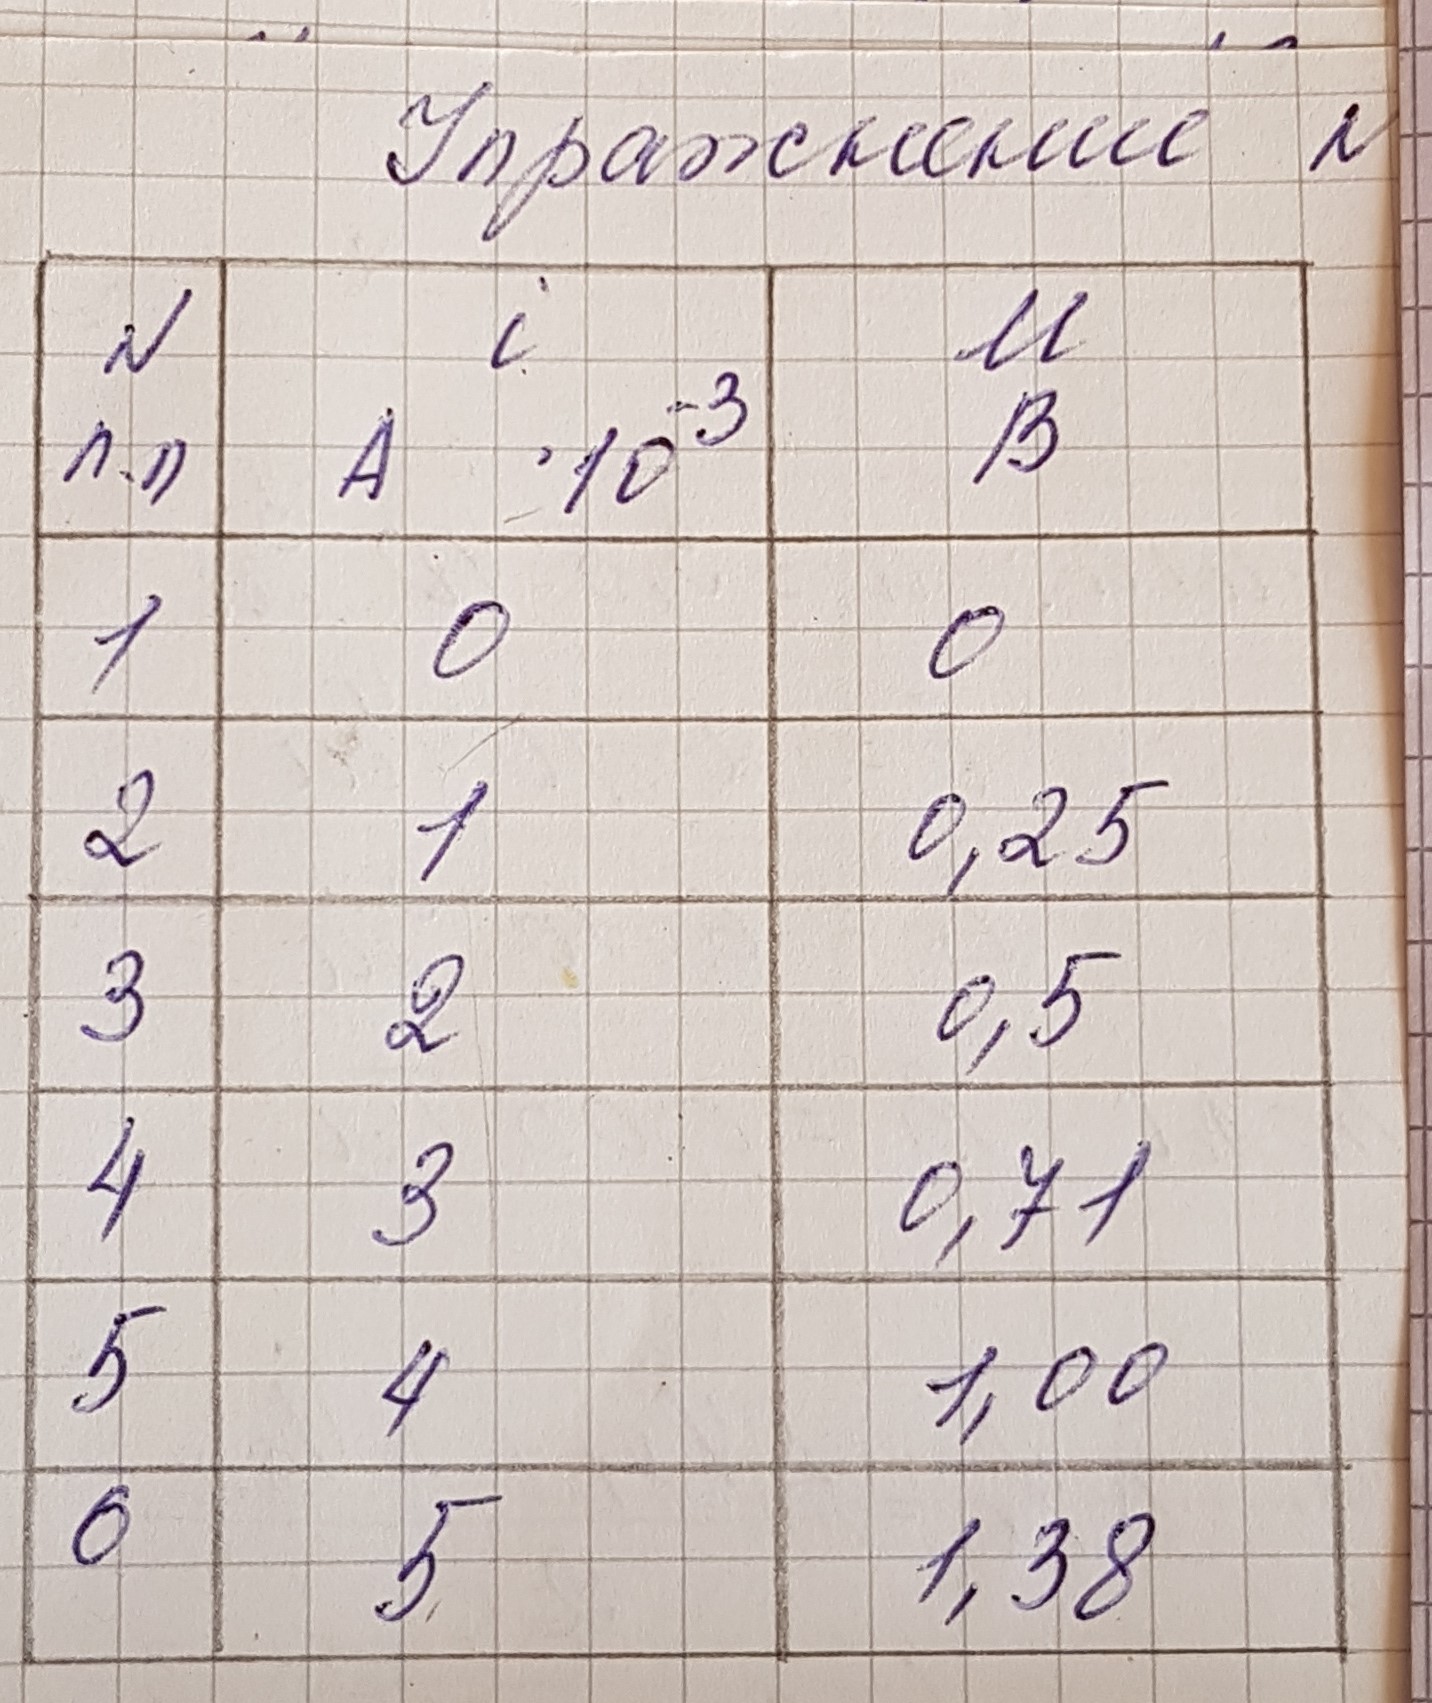 Упражнение N
N i U
п.п А ·10⁻³ В
1 0 0
2 1 0,25
3 2 0,5
4 3 0,71
5 4 1,00
6 5 1,38